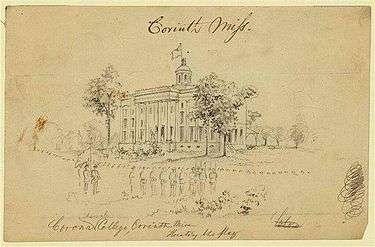 Corinth Miss.
Corona College, Corinth Miss
Hoisting the flag